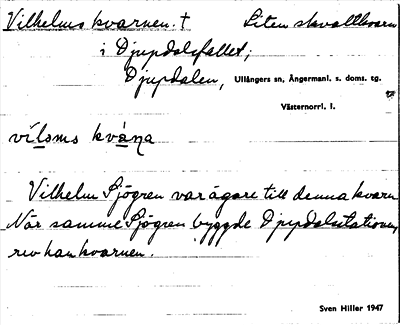 Vilhelms kvarnen. † Liten skvaltkvarn
i Djupdalsfallet;
Djupdalen, Ullångers sn, Ångermanl. s. doms. tg.
Västernorrl. l.
vìlsms kvàṇa
Vilhelm Sjögren var ägare till denna kvarn
När samme Sjögren byggde Djupdalstationen,
rev han kvarnen.
Sven Hiller 1947